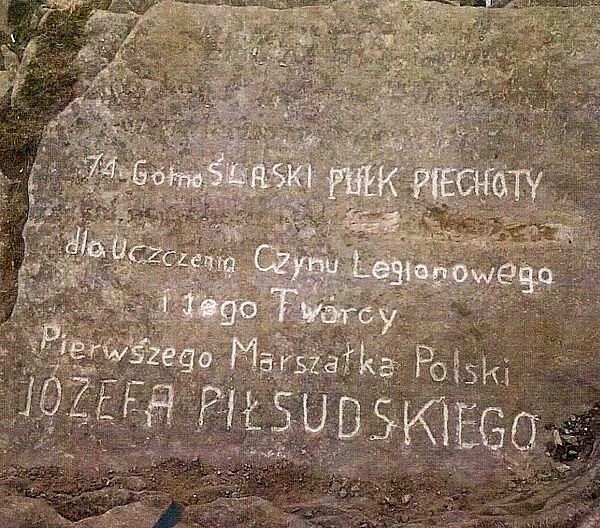 74. GórnoŚLĄSKI PUŁK PIECHOTY
dla uczczenia Czynu Legionowego
i Jego Twórcy
Pierwszego Marszałka Polski
JÓZEFA PIŁSUDSKIEGO